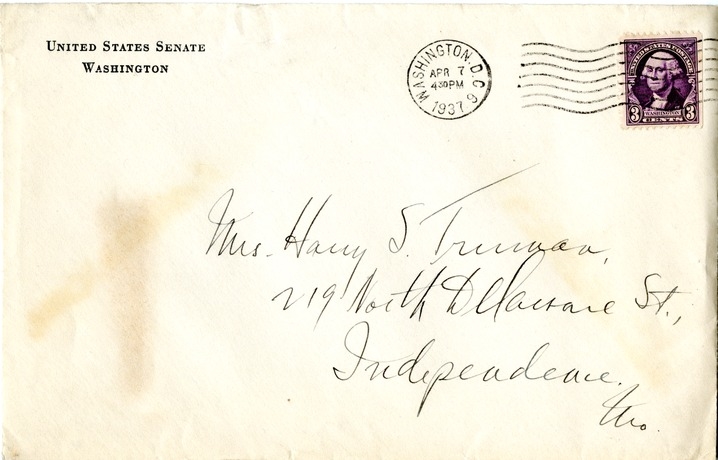 UNITED STATES SENATE
WASHINGTON
WASHINGTON, D.C. 9
APR 7
4 30 PM
1937
UNITED STATES POSTAGE
WASHINGTON
3 CENTS 3
Mrs. Harry S. Truman,
219 North Delaware St.,
Independence,
Mo.